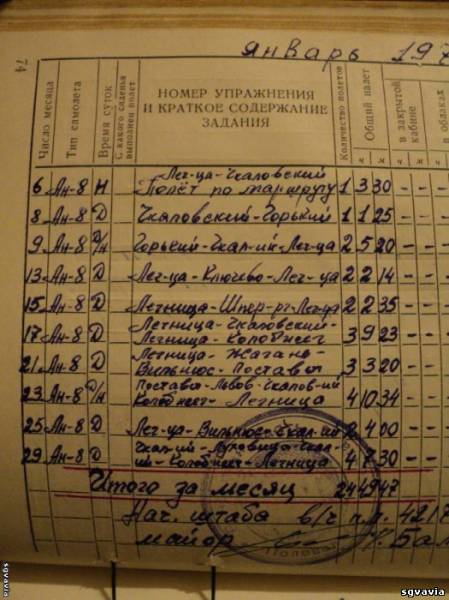 74
январь 197
Число месяца
Тип самолета
Время суток
С какого сиденья выполнен полет
НОМЕР УПРАЖНЕНИЯ И КРАТКОЕ СОДЕРЖАНИЕ ЗАДАНИЯ
Количество полетов
Общий налет
в закрытой кабине
в облаках
ч м ч м ч
Лег-ца-Чкаловский
6 Ан-8 Н Полёт по маршруту 1 3 30 - - -
8 Ан-8 Д Чкаловский-Горький 1 1 25 - - -
9 Ан-8 Д/Н Горький-Чкал-ий-Лег-ца 2 5 20 - - -
13 Ан-8 Д Лег-ца-Ключево-Лег-ца 2 2 14 - - -
15 Ан-8 Д Легница-Шпер-рг-Лег-ца 2 2 35 - - -
Легница-Чкаловский-
17 Ан-8 Д Легница-Колобжег 3 9 23 - - -
Легница-Жагань-
21 Ан-8 Д Вильнюс-Поставы 3 3 20 - - -
Поставы-Львов-Чкалов-ий
23 Ан-8 Д/Н Колобжег-Легница 4 10 34 - - -
25 Ан-8 Д Лег-ца-Вильнюс-Чкал-ий 2 4 00 - - -
Чкал-ий- -Чкал-
29 Ан-8 Д ий-Колобжег-Легница 4 7 30 - - -
Итого за месяц 24 49 47
Нач. штаба в/ч п.п. 4217
майор
sgvavia
sgvavia